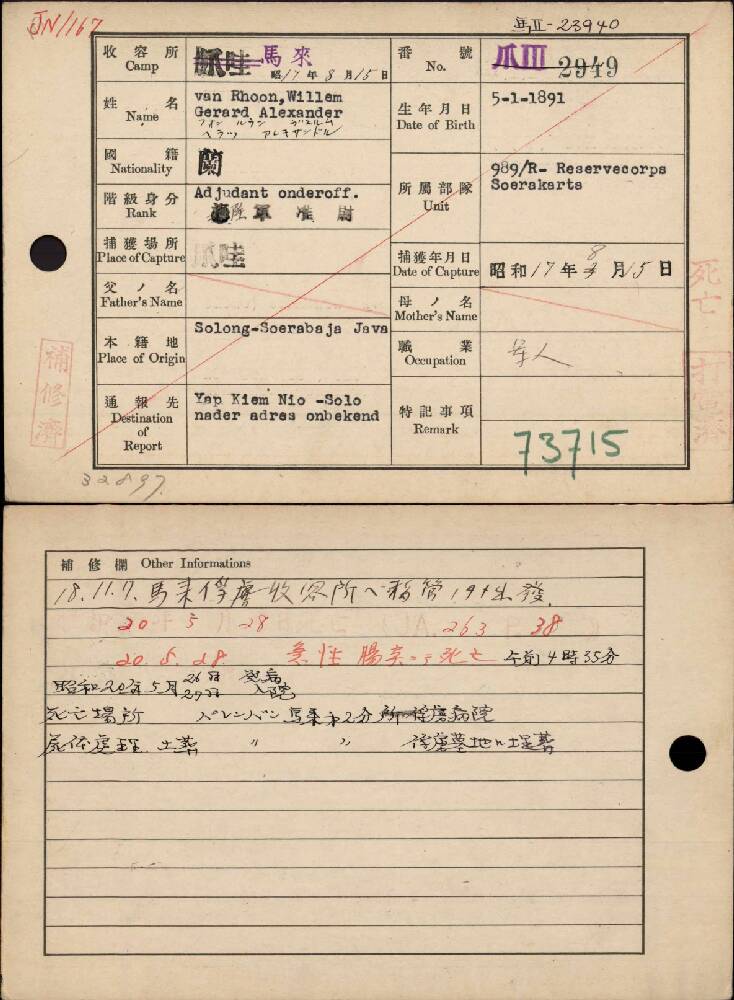 JN/167
馬II-23940
收容所 Camp 爪哇 馬來
昭17年8月15日
番號 No. 爪III 2949
姓名 Name van Rhoon,Willem
Gerard Alexander
生年月日 Date of Birth 5-1-1891
國籍 Nationality 蘭
階級身分 Rank Adjudant onderoff.
陸軍准尉
所屬部隊 Unit 989/R- Reservecorps
Soerakarta
捕獲場所 Place of Capture 爪哇
捕獲年月日 Date of Capture 昭和17年8月15日
父ノ名 Father's Name
母ノ名 Mother's Name
本籍地 Place of Origin Solong-Soerabaja Java
職業 Occupation 軍人
通報先 Destination of Report Yap Kiem Nio -Solo
nader adres onbekend
特記事項 Remark
73715
死亡
補修濟
32897
補修欄 Other Informations
18.11.7.馬来俘虜收容所ヘ移管,19出發
20 5 28 263 38
20.5.28 急性腸炎ニテ死亡 午前4時35分
昭和20年5月26日発病
27日入院
死亡場所 パレンバン馬来第2分所俘虜病院
屍体處理 土葬 〃 〃 俘虜墓地ニ埋葬